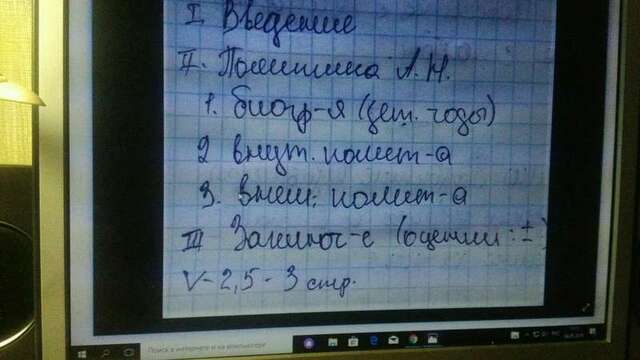 I Введение
II. Политика А. Н.
1. биогр-я (дет. годы)
2 внут. полит-а
3. Внеш. полит-а
III Заключ-е (оценки: ±)
V - 2,5 - 3 стр.
Поиск в интернете и на компьютере